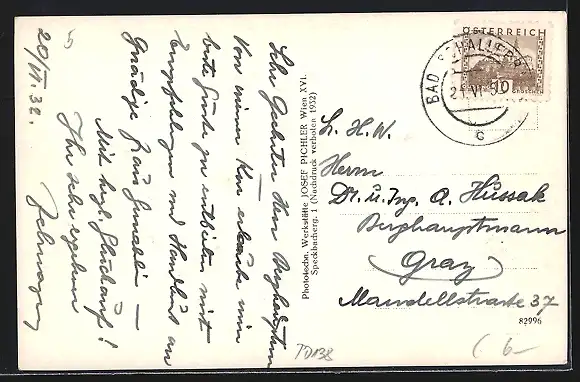 20/VI. 32.
Sehr Geehrter Herr Berghauptm
Von meiner Kur erlaube mir
beste Grüße zu entbieten mit
Empfehlungen und Handkuss an
Gnädige Frau Gemahlin —
Mit herzl. Glückauf!
Ihr sehr ergebener
Phototechn. Werkstätte JOSEF PICHLER Wien XVI.
Speckbacherg. 1 (Nachdruck verboten 1932)
ÖSTERREICH
10
GROSCHEN
BAD SCHALLERB
VI
c
S. H. W.
Herrn
Dr. u. Ing. A. Hussak
Berghauptmann
Graz
Mandellstrasse 37
82996
TD138
6–